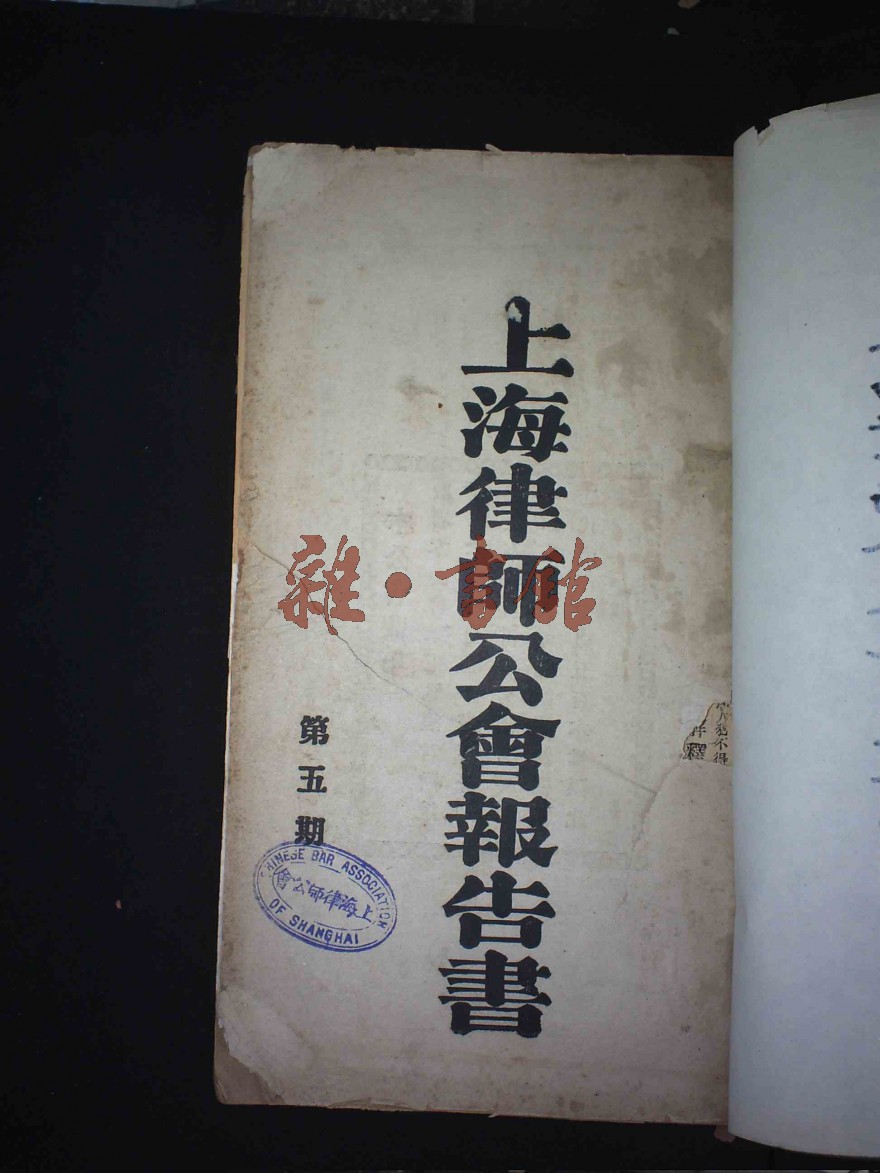 上海律師公會報告書
第五期
CHINESE BAR ASSOCIATION
上海律師公會
OF SHANGHAI
雜·書館
不得
釋